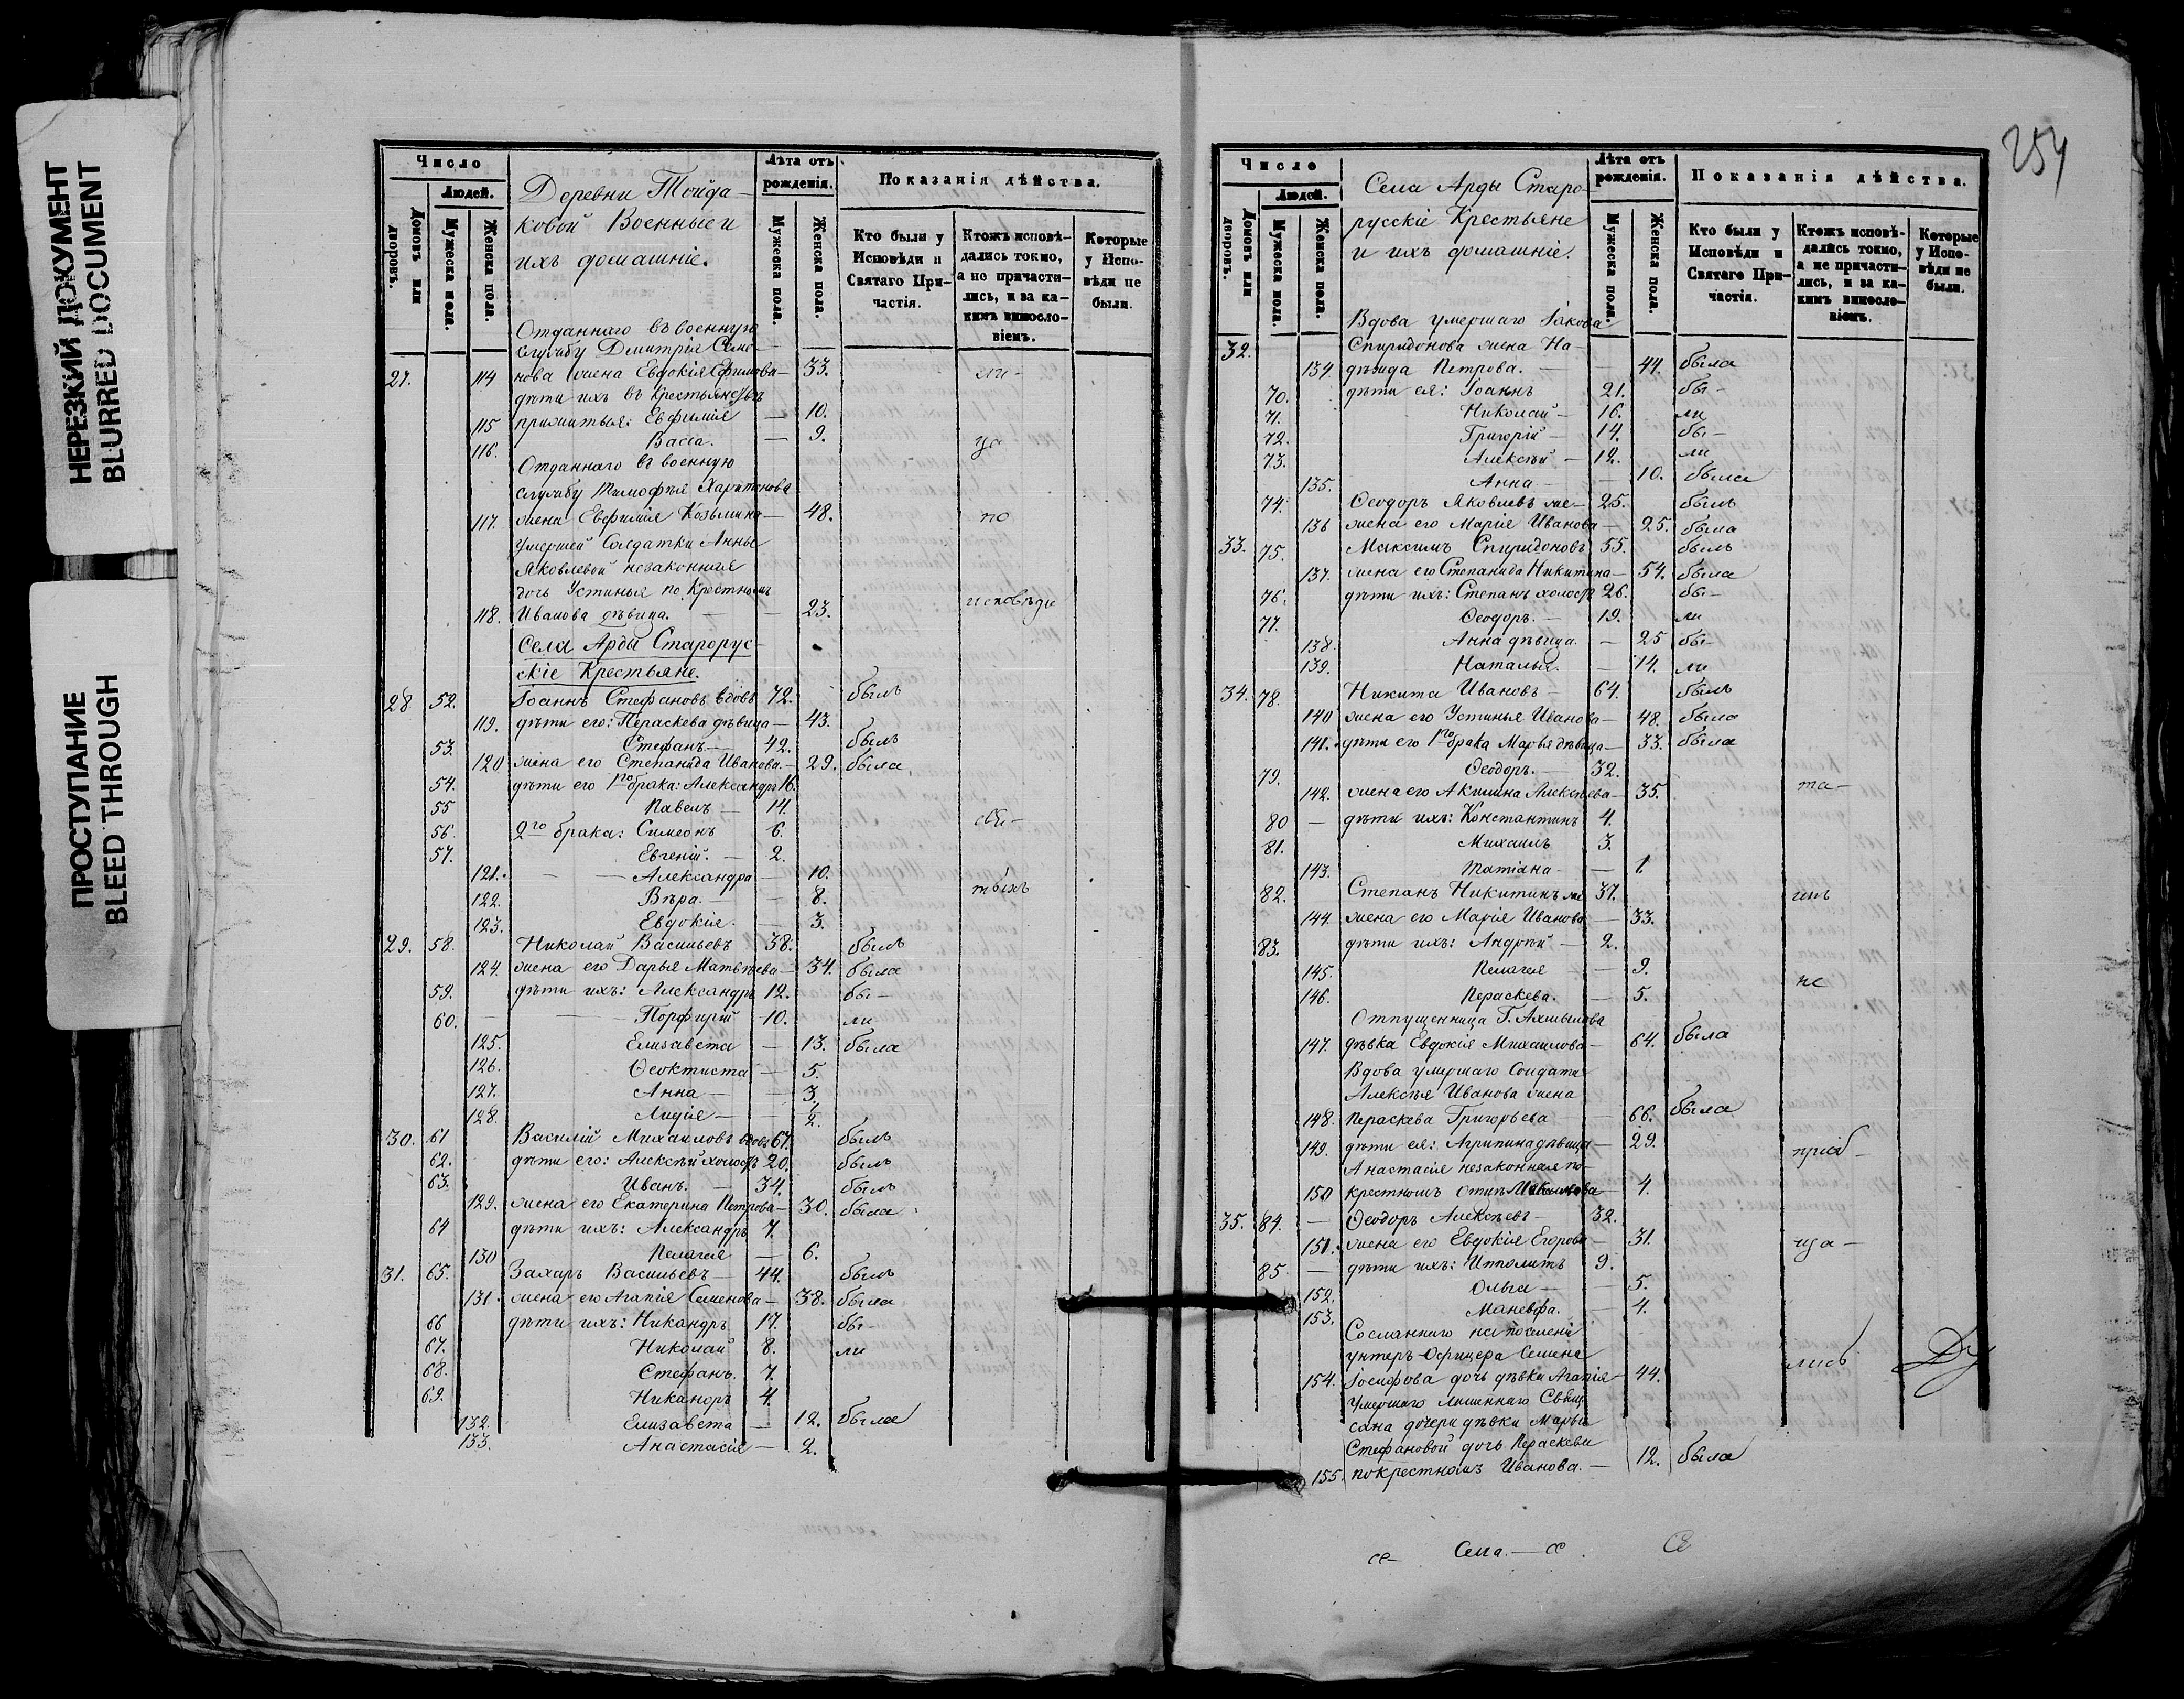 НЕРЕЗКИЙ ДОКУМЕНТ
BLURRED DOCUMENT
ПРОСТУПАНИЕ
BLEED THROUGH
Число
Домовъ или дворовъ.
Людей.
Мужеска пола.
Женска пола.
Деревни Тойда-
ковой Военные и
ихъ домашніе.
Лѣта отъ рожденія.
Мужеска пола.
Женска пола.
Показанія дѣйства.
Кто были у Исповѣди и Святаго Причастія.
Ктожъ исповѣдались токмо, а не причастились, и за какимъ винословіемъ.
Которые у Исповѣди не были.
Отданнаго въ военную
службу Дмитрія Семе-
27. 114 нова жена Евдокія Ефимова — 33.
дѣти ихъ въ Крестьянствѣ
115 прижитыя: Евфимія — 10.
116. Васса. — 9.
Отданнаго въ военную
службу Тимофея Харитонова
117. жена Евфимія Козьмина — 48. по
Умершей Солдатки Анны
Яковлевой незаконная
дочь Устинья по Крестномъ
118. Иванова дѣвица. — 23. исповѣди
Села Арды Старорус-
скіе Крестьяне.
28. 52. Іоаннъ Стефановъ вдовъ 72. былъ
119. дѣти его: Параскева дѣвица — 43.
53. Стефанъ — 42. былъ
120 жена его Степанида Иванова. — 29. была
54. дѣти его 1го брака: Александръ 16.
55 Павелъ — 14.
56. 2го брака: Симеонъ 6. свя-
57. Евгеній. — 2.
121. Александра — 10.
122. Вѣра. — 8. тыхъ
123. Евдокія. — 3.
29. 58. Николай Васильевъ 38. былъ
124. жена его Дарья Матвѣева — 34. была
59. дѣти ихъ: Александръ 12. бы-
60. Порфирій 10. ли
125. Елизавета — 13. была
126. Ѳеоктиста — 5.
127. Анна — 3.
128. Лидія — ½.
30. 61 Василій Михаиловъ вдовъ 67. былъ
62. дѣти его: Алексѣй холостъ 20. былъ
63. Иванъ. — 34. былъ
129. жена его Екатерина Петрова — 30. была
64 дѣти ихъ: Александръ 7.
130 Пелагея — 6.
31. 65. Захаръ Васильевъ — 44. былъ
131. жена его Агапія Семенова — 38. была
66 дѣти ихъ: Никандръ 17. бы-
67. Николай 8. ли
68. Стефанъ. 7.
69. Никаноръ 4.
132. Елизавета — 12. была
133. Анастасія — 2.
254
Число
Домовъ или дворовъ.
Людей.
Мужеска пола.
Женска пола.
Села Арды Старо-
русскіе Крестьяне
и ихъ домашніе.
Лѣта отъ рожденія.
Мужеска пола.
Женска пола.
Показанія дѣйства.
Кто были у Исповѣди и Святаго Причастія.
Ктожъ исповѣдались токмо, а не причастились, и за какимъ винословіемъ.
Которые у Исповѣди не были.
Вдова умершаго Іакова
32. Спиридонова жена На-
134. дѣжда Петрова. — 44. была
70. дѣти ея: Іоаннъ 21. бы-
71. Николай — 16. ли
72. Григорій — 14. бы-
73. Алексѣй — 12. ли
135. Анна — 10. была
74. Ѳеодоръ Яковлевъ же — 25. былъ
136 жена его Марія Иванова — 25. была
33. 75. Максимъ Спиридоновъ 55. былъ
137. жена его Степанида Никитина — 54. была
76. дѣти ихъ: Степанъ холостъ 26. бы-
77. Ѳеодоръ. — 19. ли
138. Анна дѣвица. — 25 бы-
139. Наталья. — 14. ли
34. 78. Никита Ивановъ — 64. былъ
140 жена его Устинья Иванова — 48. была
141. дѣти его 1го брака Марья дѣвица — 33. была
79. Ѳеодоръ. — 32.
142. жена его Акилина Алексѣева — 35. та-
80 — дѣти ихъ: Константинъ 4.
81. Михаилъ 3.
143. Татіана — 1
82. Степанъ Никитинъ же 37. инъ
144. жена его Марія Иванова — 33.
83. дѣти ихъ: Андрей — 2.
145. Пелагея — 9. не
146. Параскева. — 5.
Отпущенница Г. Ахматова
147. дѣвка Евдокія Михаилова — 64. была
Вдова умершаго Солдата
Алексѣя Иванова жена
148. Параскева Григорьева — 66. была
149. дѣти ея: Агрипина дѣвица — 29. пріоб-
Анастасія незаконная по-
150 крестномъ отцѣ — 4.
35. 84. — Ѳеодоръ Алексѣевъ — 32.
151. жена его Евдокія Егорова — 31. ща-
85. — дѣти ихъ: Ипполитъ 9.
152. Ольга — 5.
153. Манефа. — 4.
Сосланнаго на поселеніе
унтеръ-Офицера Семена
154. Іосифова дочь дѣвка Агапія — 44. лись
Умершаго лишеннаго Свящ.
сана дочери дѣвки Марьи
Стефановой дочь Параскева
155. покрестномъ Иванова. — 12. была
Села.